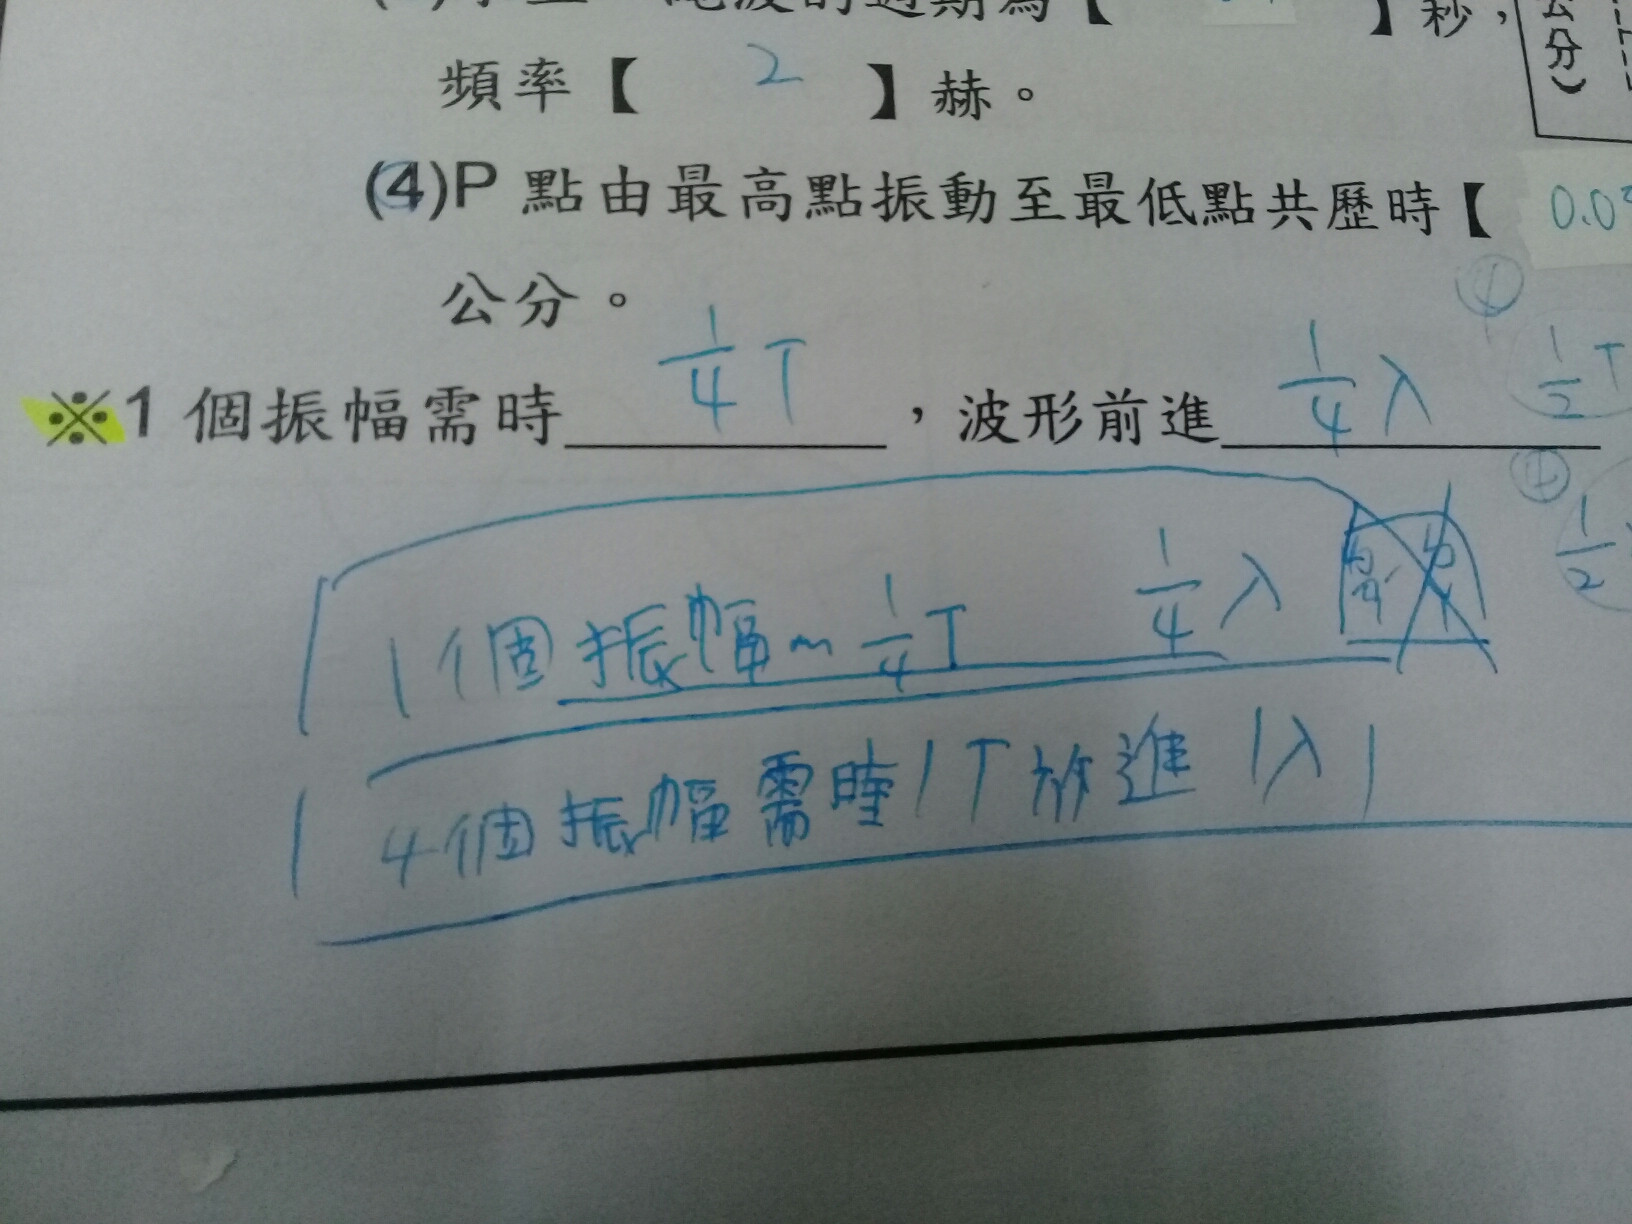 波的週期為【 】秒,
頻率【 2 】赫。
公分)
(4)P 點由最高點振動至最低點共歷時【 0.0
公分。
④
※1 個振幅需時 1/4 T ,波形前進 1/4 λ
1/2 T
④
1/2
1個振幅~1/4 T 1/4 λ
4個振幅需時1T 於進 1λ